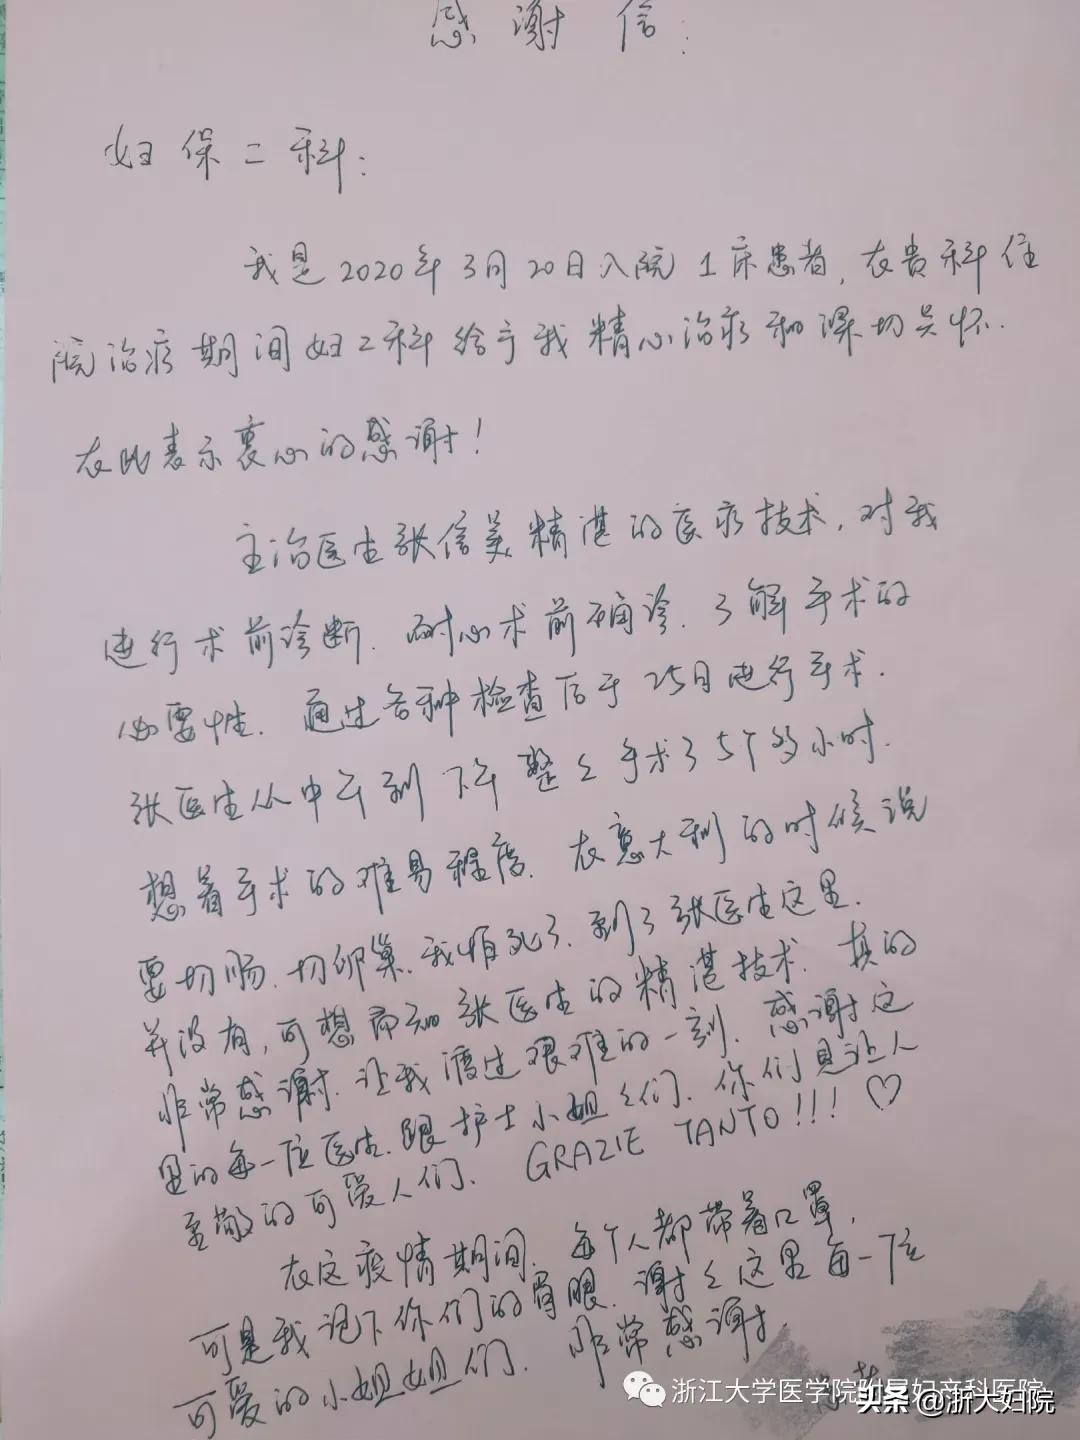 感谢信:
妇保二科:
我是2020年3月20日入院1床患者,在贵科住
院治疗期间妇2科给予我精心治疗和深切关怀.
在此表示衷心的感谢!
主治医生张信美精湛的医疗技术,对我
进行术前诊断.耐心术前确诊.了解手术的
必要性.通过各种检查后于25日进行手术.
张医生从中午到下午整整手术了5个多小时.
想着手术的难易程度.在意大利的时候说
要切肠.切卵巢.我怕死了.到了张医生这里.
并没有,可想而知张医生的精湛技术.真的
非常感谢.让我渡过艰难的一刻.感谢这
里的每一位医生.跟护士小姐姐们.你们是让人
至敬的可爱人们.GRAZIE TANTO!!! ♡
在这疫情期间.每个人都带着口罩.
可是我记下你们的眉眼.谢谢这里每一位
可爱的小姐姐们.非常感谢.
浙江大学医学院附属妇产科医院
头条 @浙大妇院